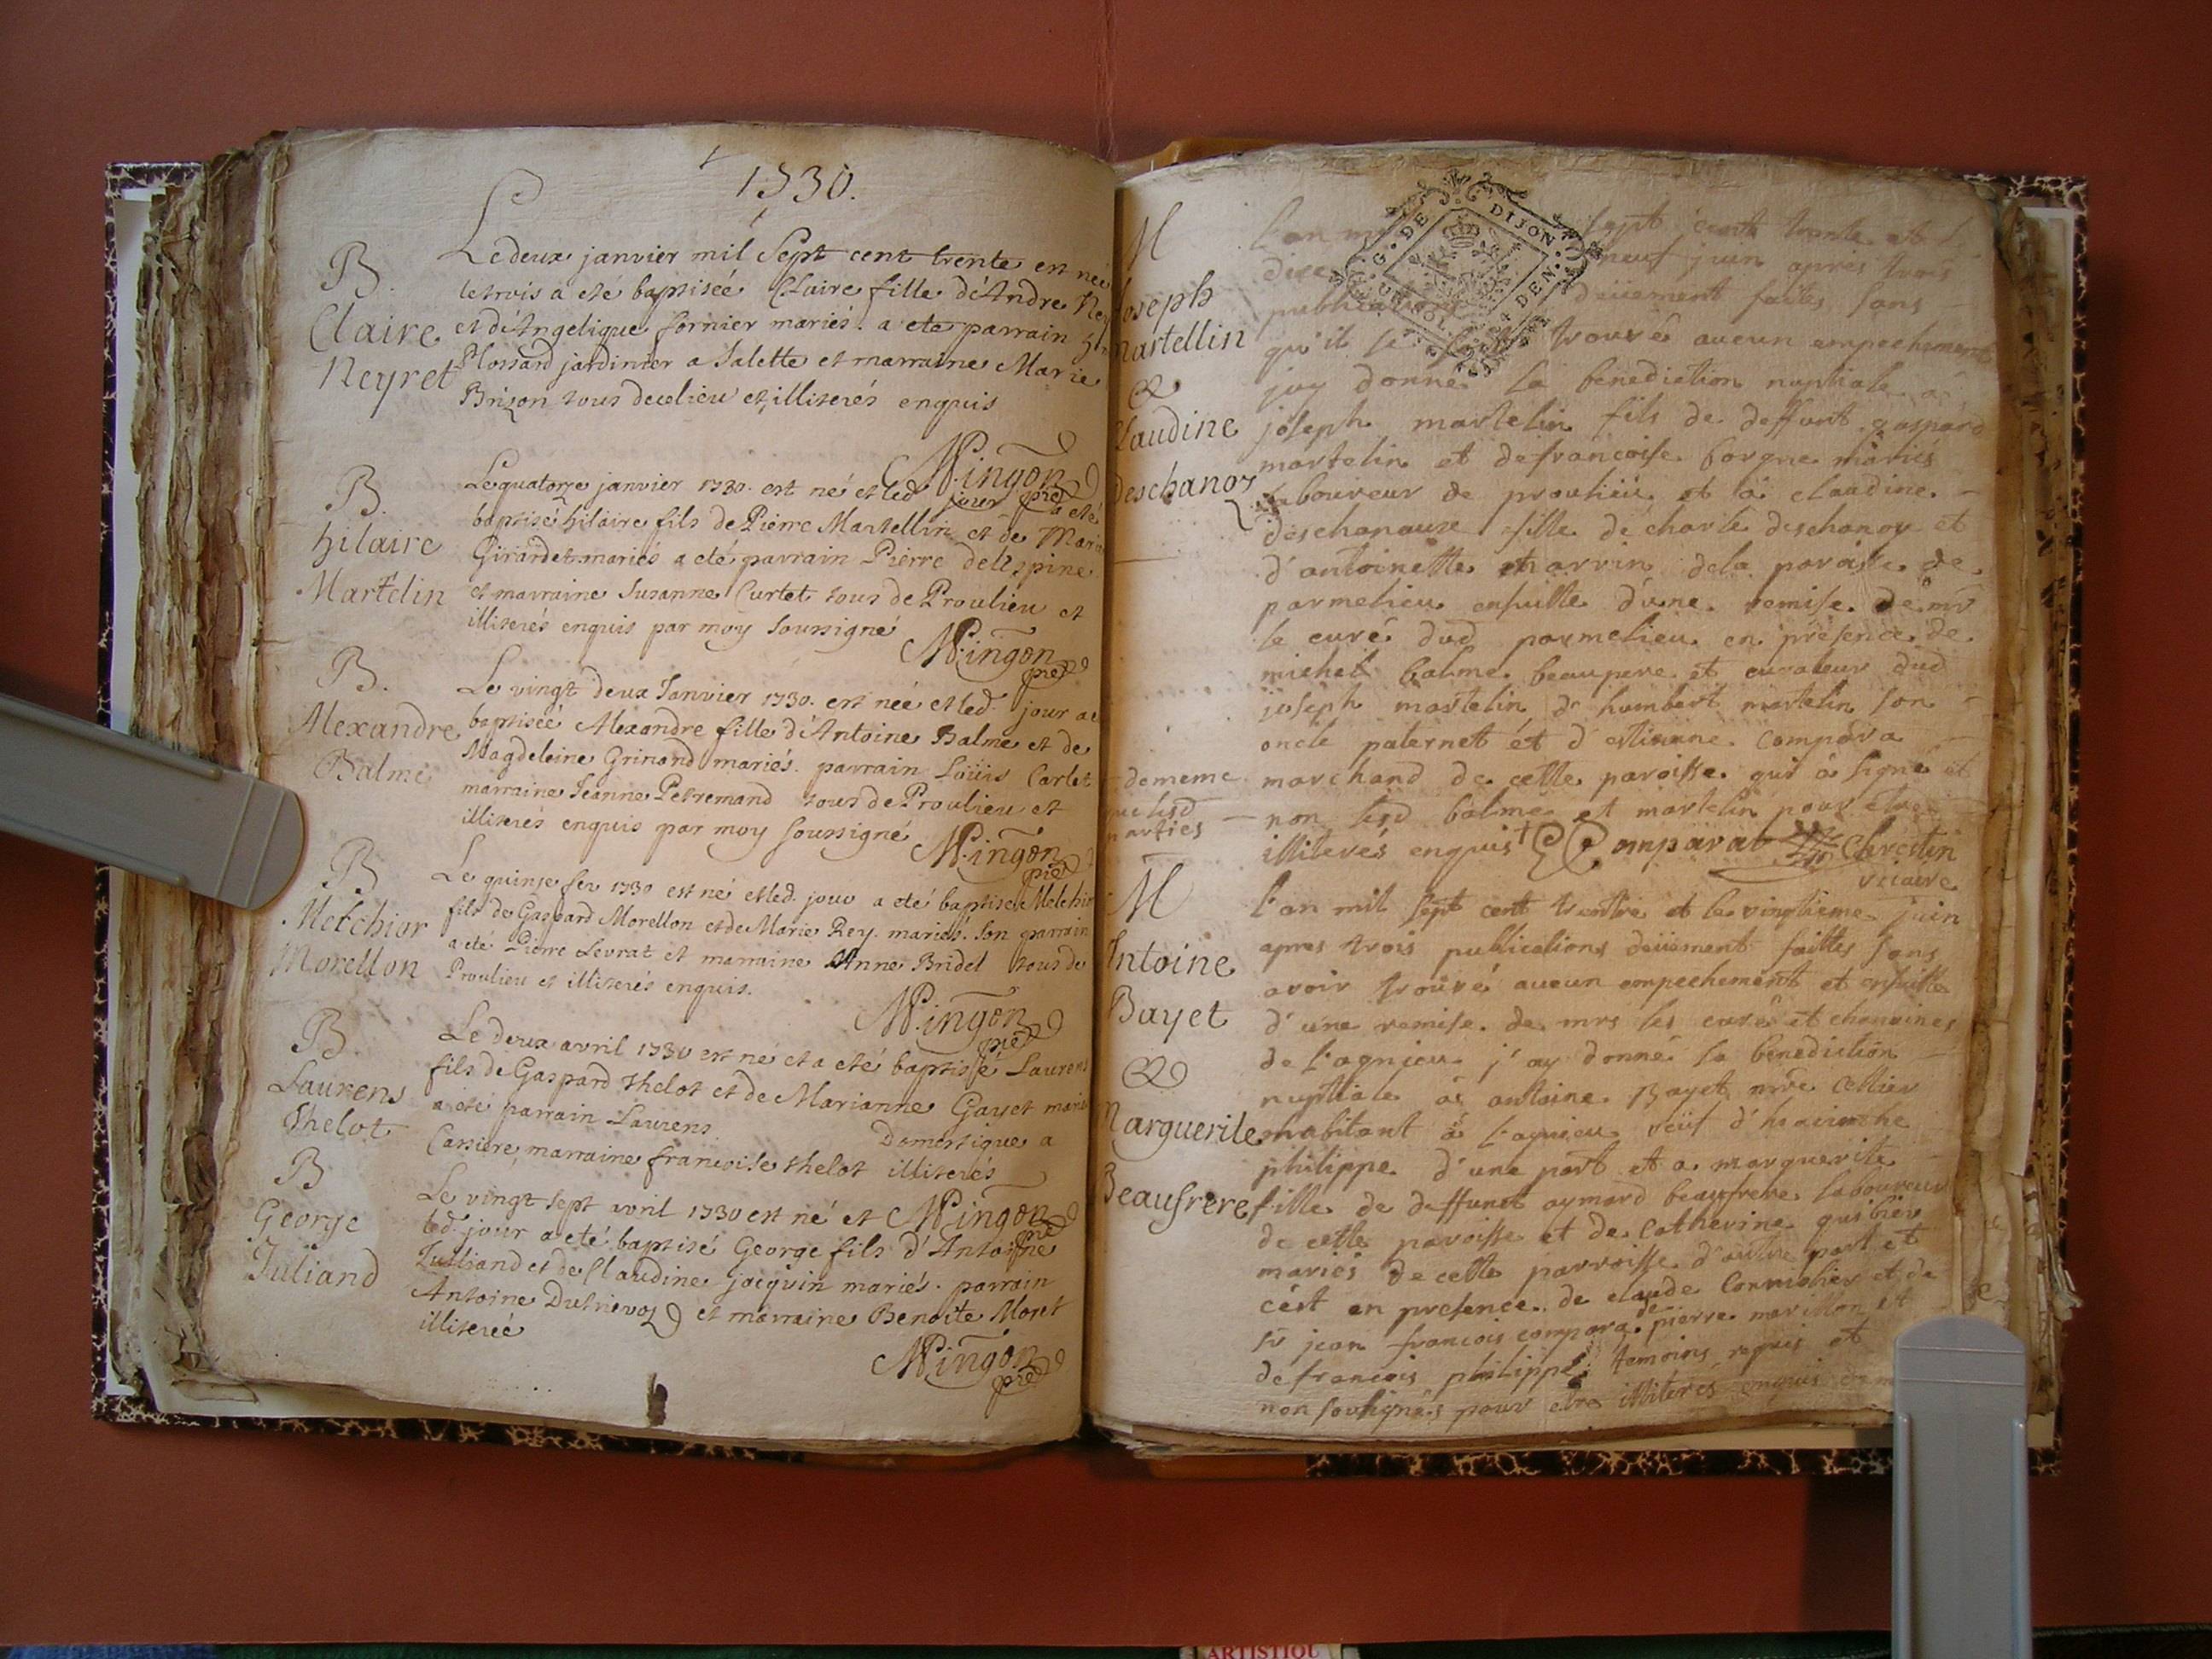 1730.
B.
Claire
Neyret
Le deux janvier mil Sept cent trente est neé
letrois a eté baptiséé Claire fille d'Andre Ney
et d'Angelique fornier mariés. a eté parrain
Plossard jardinier a Salette et marraine Marie
Brizon tous decelieu et illiterés enquis
Mingon
pre
B.
hilaire
Martelin
Lequatorze janvier 1730. est né et led jour a eté
baptisé hilaire fils de Pierre Martellin et de Marie
Girardet mariés a eté parrain Pierre delespine
et marraine Susanne Curtet tous de Proulieu et
illiterés enquis par moy soussigné
Mingon
pre
B.
Alexandre
Balme
Le vingt deux Janvier 1730. est neé et led. jour a e
baptiseé Alexandre fille d'Antoine Balme et de
Magdeleine Grinand mariés. parrain Loüis Carlet
marraine Jeanne Petremand tous de Proulieu et
illiterés enquis par moy soussigné
Mingon
pre
B
Melchior
Morellon
Le quinze fev 1730 est né et led. jour a eté baptisé Melchior
fils de Gaspard Morellon et de Marie Rey. mariés. son parrain
a eté Pierre Levrat et marraine Anne Bridel tous de
Proulieu et illiterés enquis.
Mingon
pre
B
Laurens
thelot
Le deux avril 1730 est né et a eté baptisé Laurens
fils de Gaspard thelot et de Marianne Gayet marié
a eté parrain Laurens Domestique a
marraine francoise thelot illiterés
Mingon
pre
B
George
Juliand
Le vingt sept avril 1730 est né et
led. jour a eté baptisé George fils d'Antoine
Julliand et de Claudine jacquin mariés. parrain
Antoine Dutrievoz et marraine Benoite Moret
illitereé
Mingon
pre
G. DE DIJON
DEN.
M
Joseph
Martellin
&
Claudine
Deschanoz
L'an mil sept cent trente et
dixe neuf juin apres trois
publications deüement faites sans
qu'il se soit trouvé aucun empechement
jay donné la benediction nuptiale a
joseph martelin fils de deffunt gaspard
martelin et defrancoise borgne mariés
laboureur de proulieu et a claudine
deschanaux fille de charle deschanoz et
d'antoinette marvin dela paroisse de
parmelieu ensuitte d'une remise de mr
le curé dud parmelieu en présence de
michel balme beaupere et curateur dud
joseph martelin d'humbert martelin son
oncle paternel et d'estienne compara
marchand de cette paroisse qui a signé et
non lesd balme et martelin pour etre
illiterés enquis Comparat Chrestin
viiaire
de meme
que lesd
parties
M
Antoine
Bayet
&
Marguerite
Beaufrere
l'an mil sept cent trente et le vingtieme juin
apres trois publications deüement faittes sans
avoir trouvé aucun empechement et ensuitte
d'une remise de mrs les curé et chanoines
de l'agnieu j'ay donné la benediction
nuptiale a antoine Bayet mre Cellier
habitant a l'agnieu veuf d'hiacinthe
philippe d'une part et a marguerite
fille de deffunct aymard beaufrere laboureur
de cette paroisse et de Catherine
mariés de cette parroisse d'autre part et
cést en presence de claude Cormolier et de
sr jean francois compara de pierre marillon et
defrancois philippe temoins requis et
non soussignés pour etre illiterés enquis